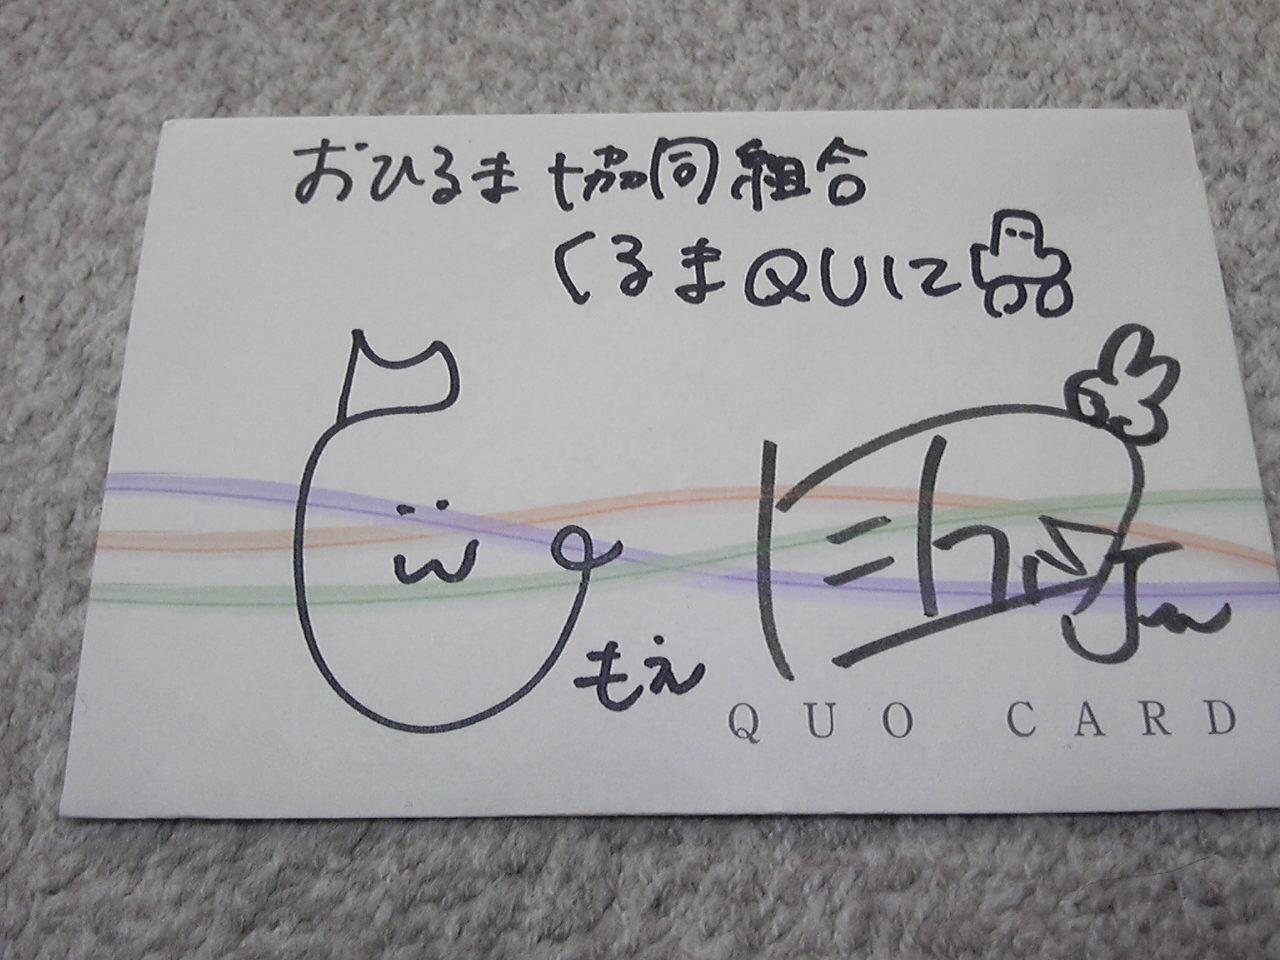 おひるま 協同組合
くるまQUIZ
もえ
QUO CARD